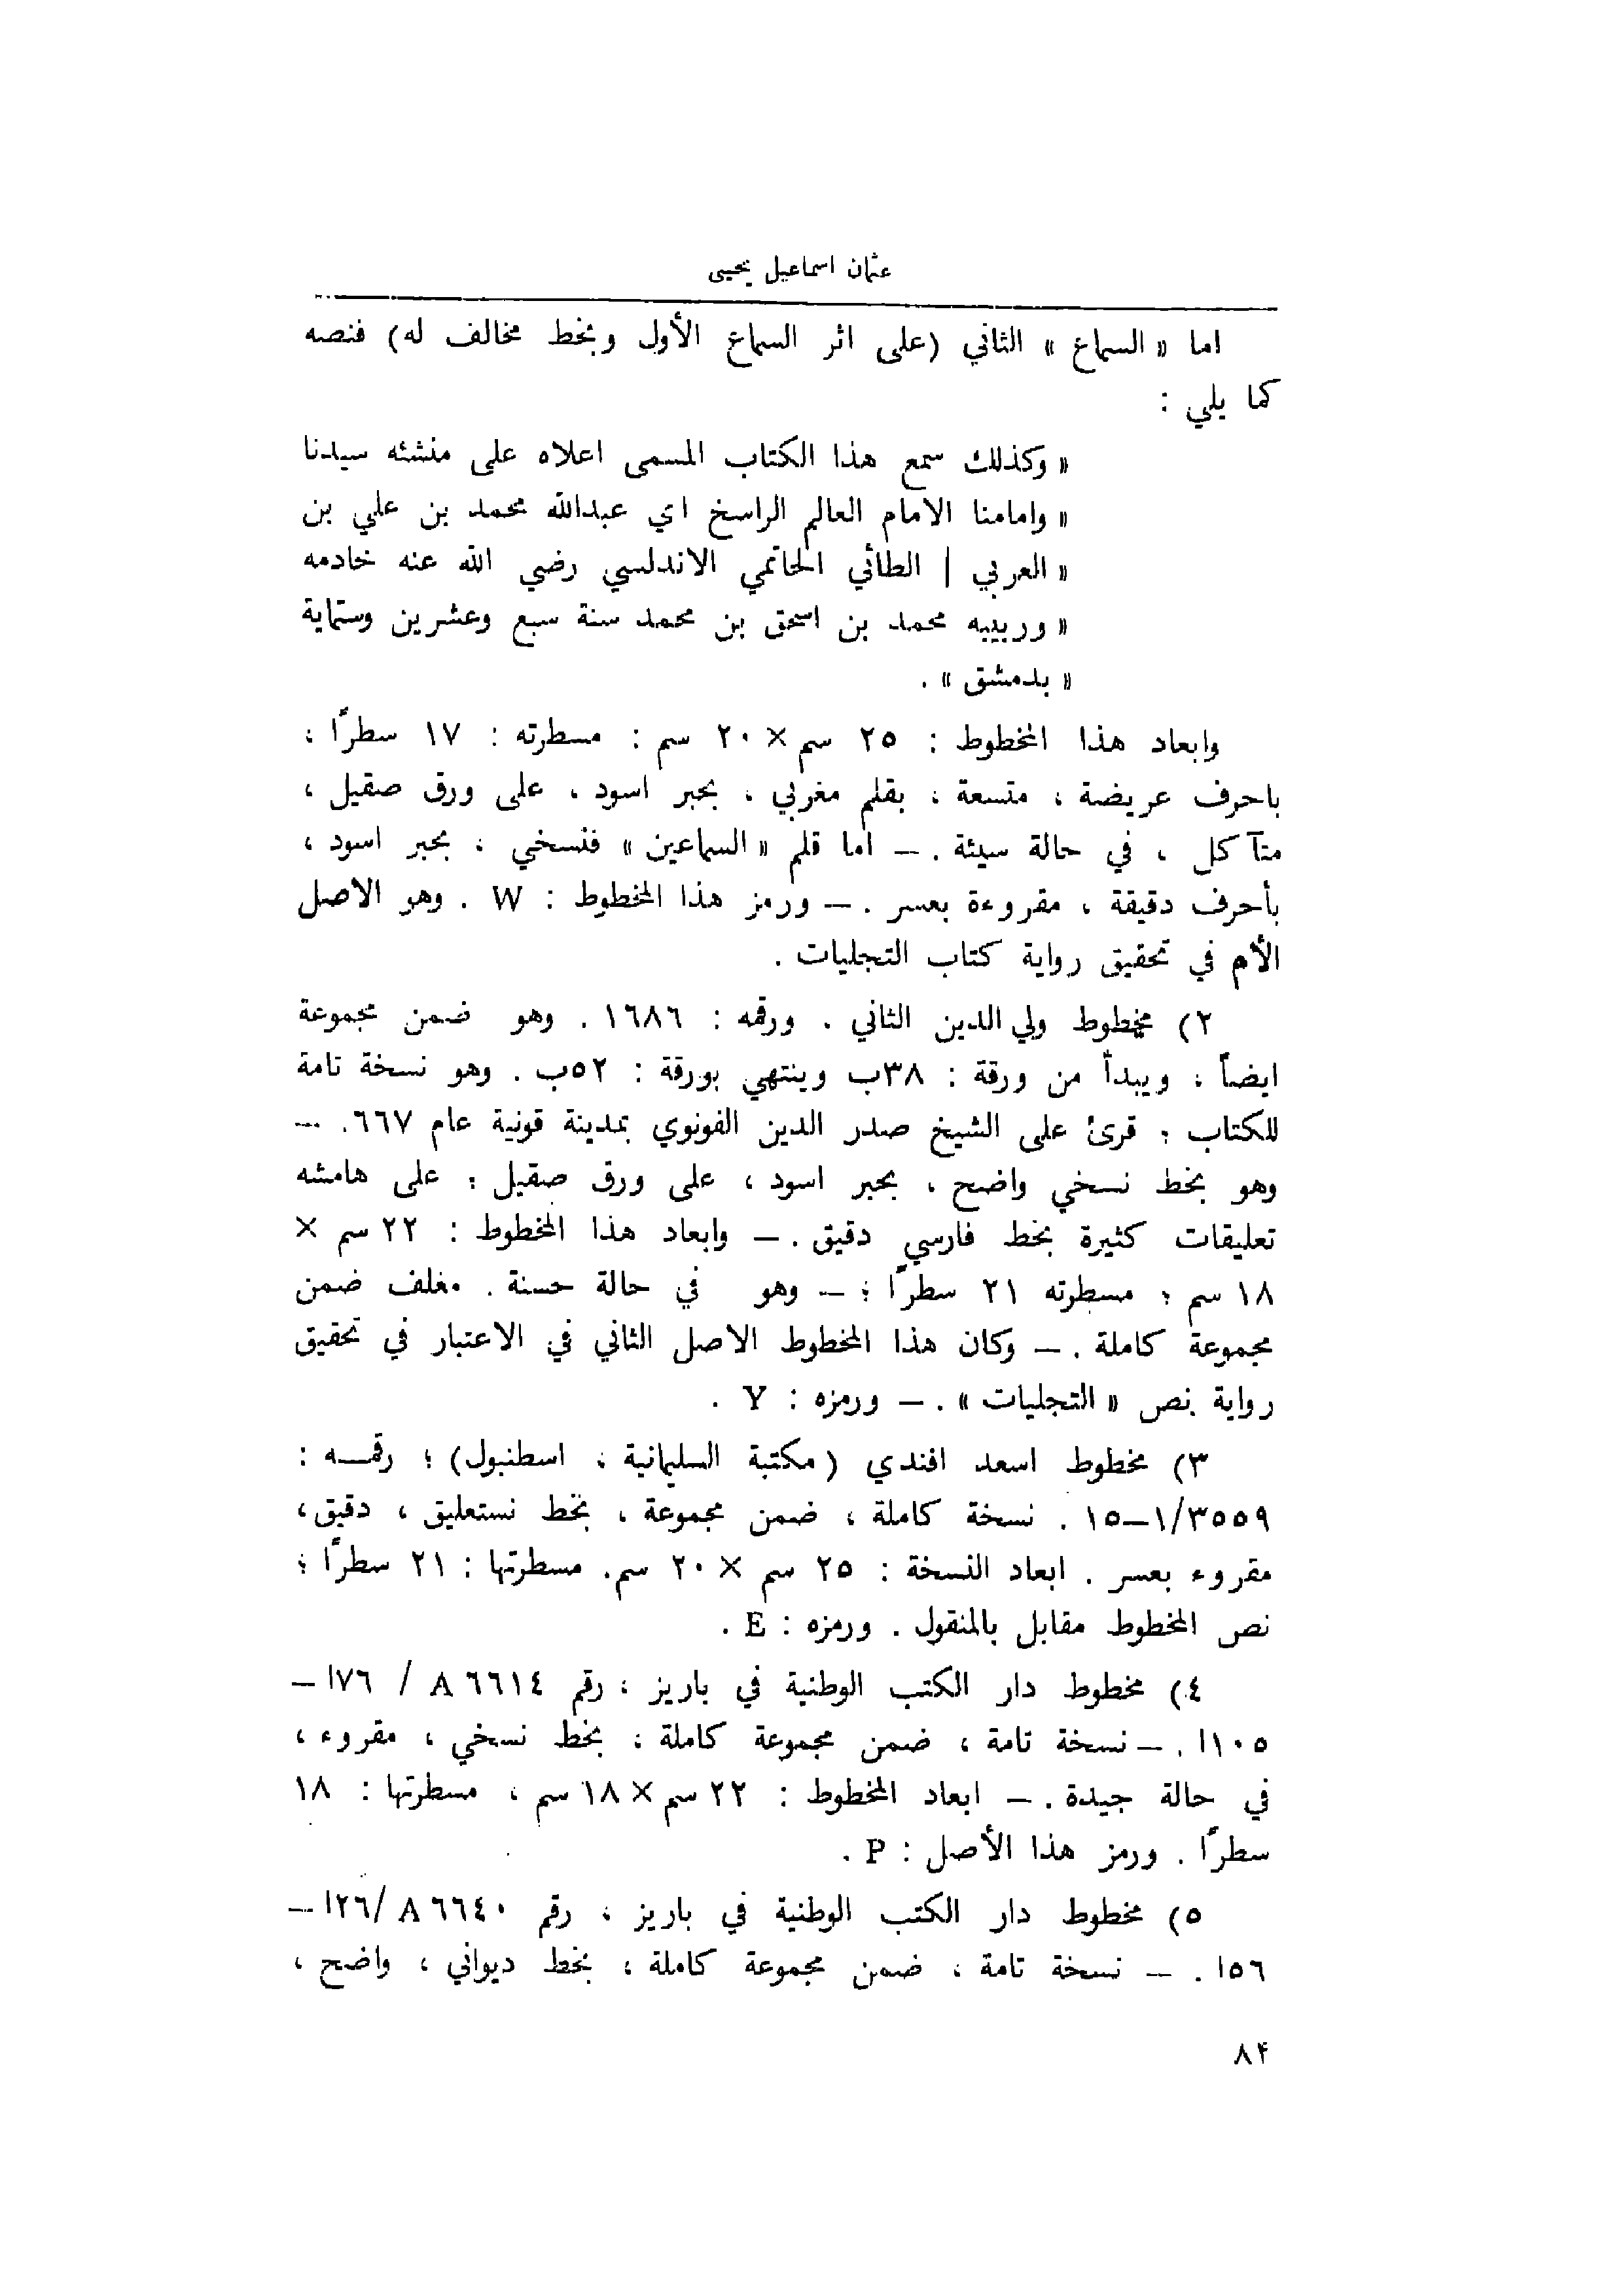 عثمان اسماعيل يحيى
اما « السماع » الثاني (على اثر السماع الأول وبخط مخالف له) فنصه
كما يلي :
« وكذلك سمع هذا الكتاب المسمى اعلاه على منشئه سيدنا
« وامامنا الامام العالم الراسخ اي عبدالله محمد بن علي بن
« العربي | الطائي الحاتمي الاندلسي رضي الله عنه خادمه
« وربيبه محمد بن اسحق بن محمد سنة سبع وعشرين وستماية
« بدمشق » .
وابعاد هذا المخطوط : ٢٥ سم × ٢٠ سم : مسطرته : ١٧ سطرًا ،
باحرف عريضة ، متسعة ، بقلم مغربي ، بحبر اسود ، على ورق صقيل ،
متآكل ، في حالة سيئة . — اما قلم « السماعين » فنسخي ، بحبر اسود ،
بأحرف دقيقة ، مقروءة بعسر . — ورمز هذا المخطوط : W . وهو الاصل
الأم في تحقيق رواية كتاب التجليات .
٢) مخطوط ولي الدين الثاني . ورقمه : ١٦٨٦ . وهو ضمن مجموعة
ايضاً ، ويبدأ من ورقة : ٣٨ب وينتهي بورقة : ٥٢ب . وهو نسخة تامة
للكتاب ؛ قرئ على الشيخ صدر الدين القونوي بمدينة قونية عام ٦٦٧. —
وهو بخط نسخي واضح ، بحبر اسود ، على ورق صقيل ؛ على هامشه
تعليقات كثيرة بخط فارسي دقيق . — وابعاد هذا المخطوط : ٢٢ سم ×
١٨ سم ؛ مسطرته ٢١ سطرًا ؛ — وهو في حالة حسنة . مغلف ضمن
مجموعة كاملة . — وكان هذا المخطوط الاصل الثاني في الاعتبار في تحقيق
رواية نص « التجليات » . — ورمزه : Y .
٣) مخطوط اسعد افندي (مكتبة السليمانية ، اسطنبول) ؛ رقمـــه :
٣٥٥٩/١—١٥ . نسخة كاملة ، ضمن مجموعة ، بخط نستعليق ، دقيق ،
مقروء بعسر . ابعاد النسخة : ٢٥ سم × ٢٠ سم. مسطرتها : ٢١ سطرًا ؛
نص المخطوط مقابل بالمنقول . ورمزه : E .
٤) مخطوط دار الكتب الوطنية في باريز ، رقم ٦٦١٤ A / ١٧٦ —
١١٠٥ . — نسخة تامة ، ضمن مجموعة كاملة ، بخط نسخي ، مقروء ،
في حالة جيدة . — ابعاد المخطوط : ٢٢ سم × ١٨ سم ، مسطرتها : ١٨
سطرًا . ورمز هذا الأصل : P .
٥) مخطوط دار الكتب الوطنية في باريز ، رقم ٦٦٤٠ A /١٢٦ا —
١٥٦ . — نسخة تامة ، ضمن مجموعة كاملة ، بخط ديواني ، واضح ،
٨۴